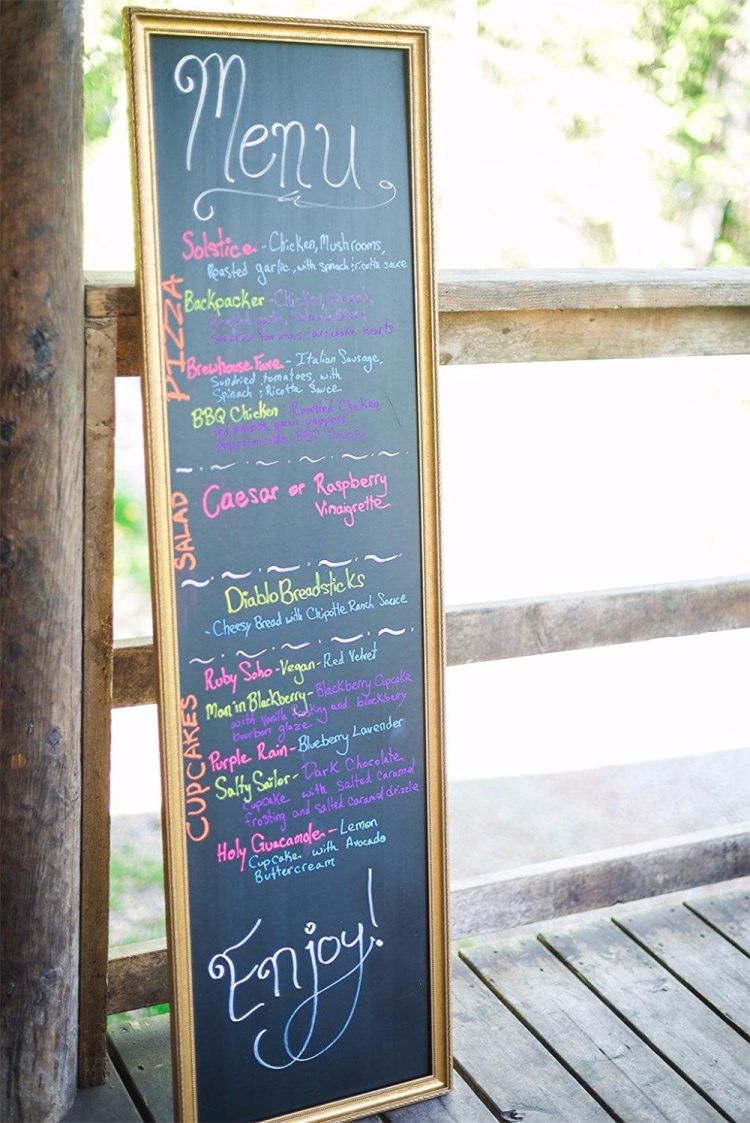 Menu
PIZZA
Solstice - Chicken, Mushrooms,
Roasted garlic, with spinach & ricotta sauce
Backpacker - Chicken,
artichoke hearts
Brewhouse Fave - Italian Sausage,
Sundried tomatoes, with
Spinach & Ricotta Sauce
BBQ Chicken - Roasted Chicken,
red onions, green peppers,
BBQ Sauce
SALAD
Caesar or Raspberry
Vinaigrette
Diablo Breadsticks
- Cheesy Bread with Chipotle Ranch Sauce
CUPCAKES
Ruby Soho - Vegan - Red Velvet
Man in Blackberry - Blackberry Cupcake
with vanilla frosting and blackberry
bourbon glaze
Purple Rain - Blueberry Lavender
Salty Sailor - Dark Chocolate
cupcake with salted caramel
frosting and salted caramel drizzle
Holy Guacamole - Lemon
Cupcake with Avocado
Buttercream
Enjoy!